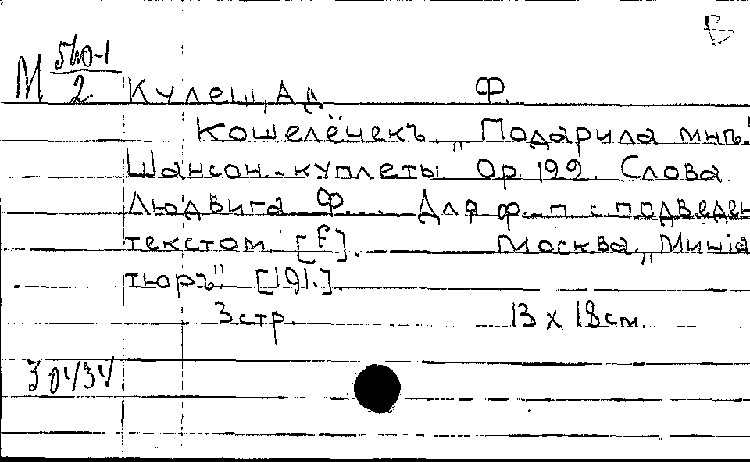 В
М 540-1/2
Кулеш, Ад. Ф.
Кошелёчекъ „Подарила мнѣ"
Шансон.-куплеты Op. 122. Слова
Людвига Ф. Для ф.-п с подведен
текстом. [F]. Москва, „Миніа
тюръ" [191.].
3 стр. 13 x 18 см.